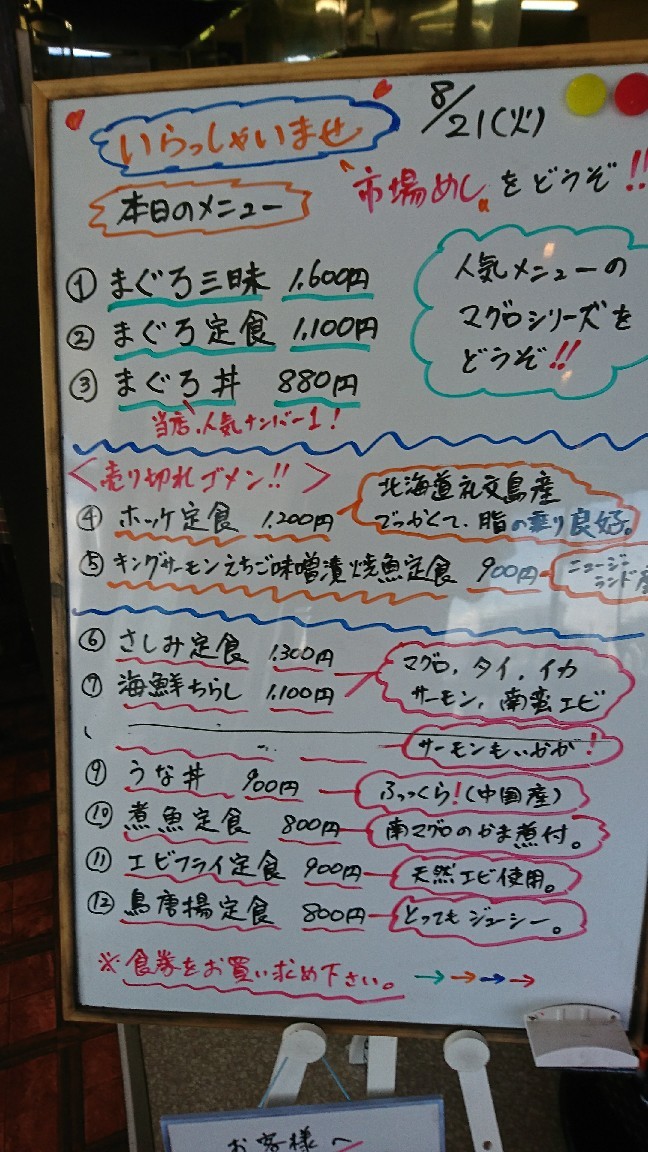 いらっしゃいませ
8/21(火)
本日のメニュー
"市場めし"をどうぞ!!
① まぐろ三昧 1,600円
② まぐろ定食 1,100円
③ まぐろ丼 880円
当店、人気ナンバー1!
人気メニューの
マグロシリーズを
どうぞ!!
<売り切れゴメン!!>
④ ホッケ定食 1,200円
北海道礼文島産
でっかくて、脂の乗り良好。
⑤ キングサーモンえちご味噌漬焼魚定食 900円
ニュージー
ランド産
⑥ さしみ定食 1,300円
⑦ 海鮮ちらし 1,100円
マグロ、タイ、イカ
サーモン、南蛮エビ
サーモンもいかが!
⑨ うな丼 900円
ふっくら!(中国産)
⑩ 煮魚定食 800円
南マグロのかま煮付。
⑪ エビフライ定食 900円
天然エビ使用。
⑫ 鳥唐揚定食 800円
とってもジューシー。
※食券をお買い求め下さい。→→→→
お客様へ